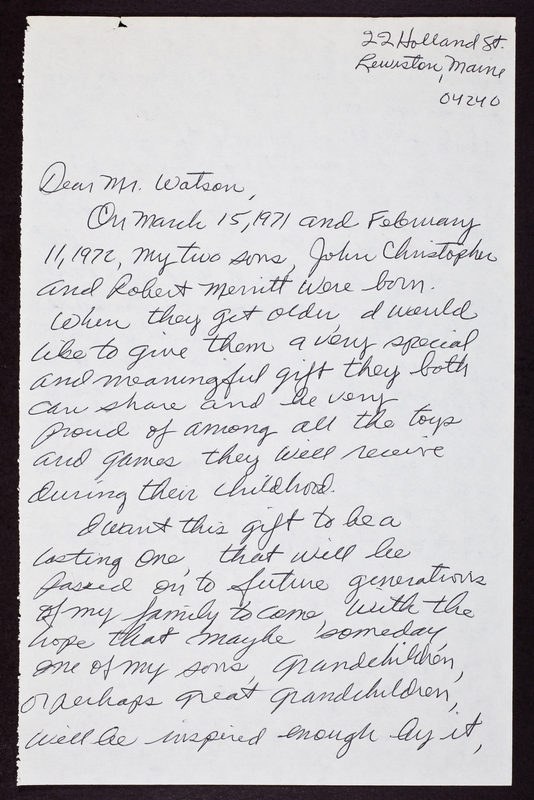 22 Holland St.
Lewiston, Maine
04240
Dear Mr. Watson,
On March 15, 1971 and February
11, 1972, my two sons, John Christopher
and Robert Merritt were born.
When they get older, I would
like to give them a very special
and meaningful gift they both
can share and be very
proud of among all the toys
and games they will receive
during their childhood.
I want this gift to be a
lasting one, that will be
passed on to future generations
of my family to come, with the
hope that maybe someday
one of my sons, grandchildren,
or perhaps great grandchildren,
will be inspired enough by it,